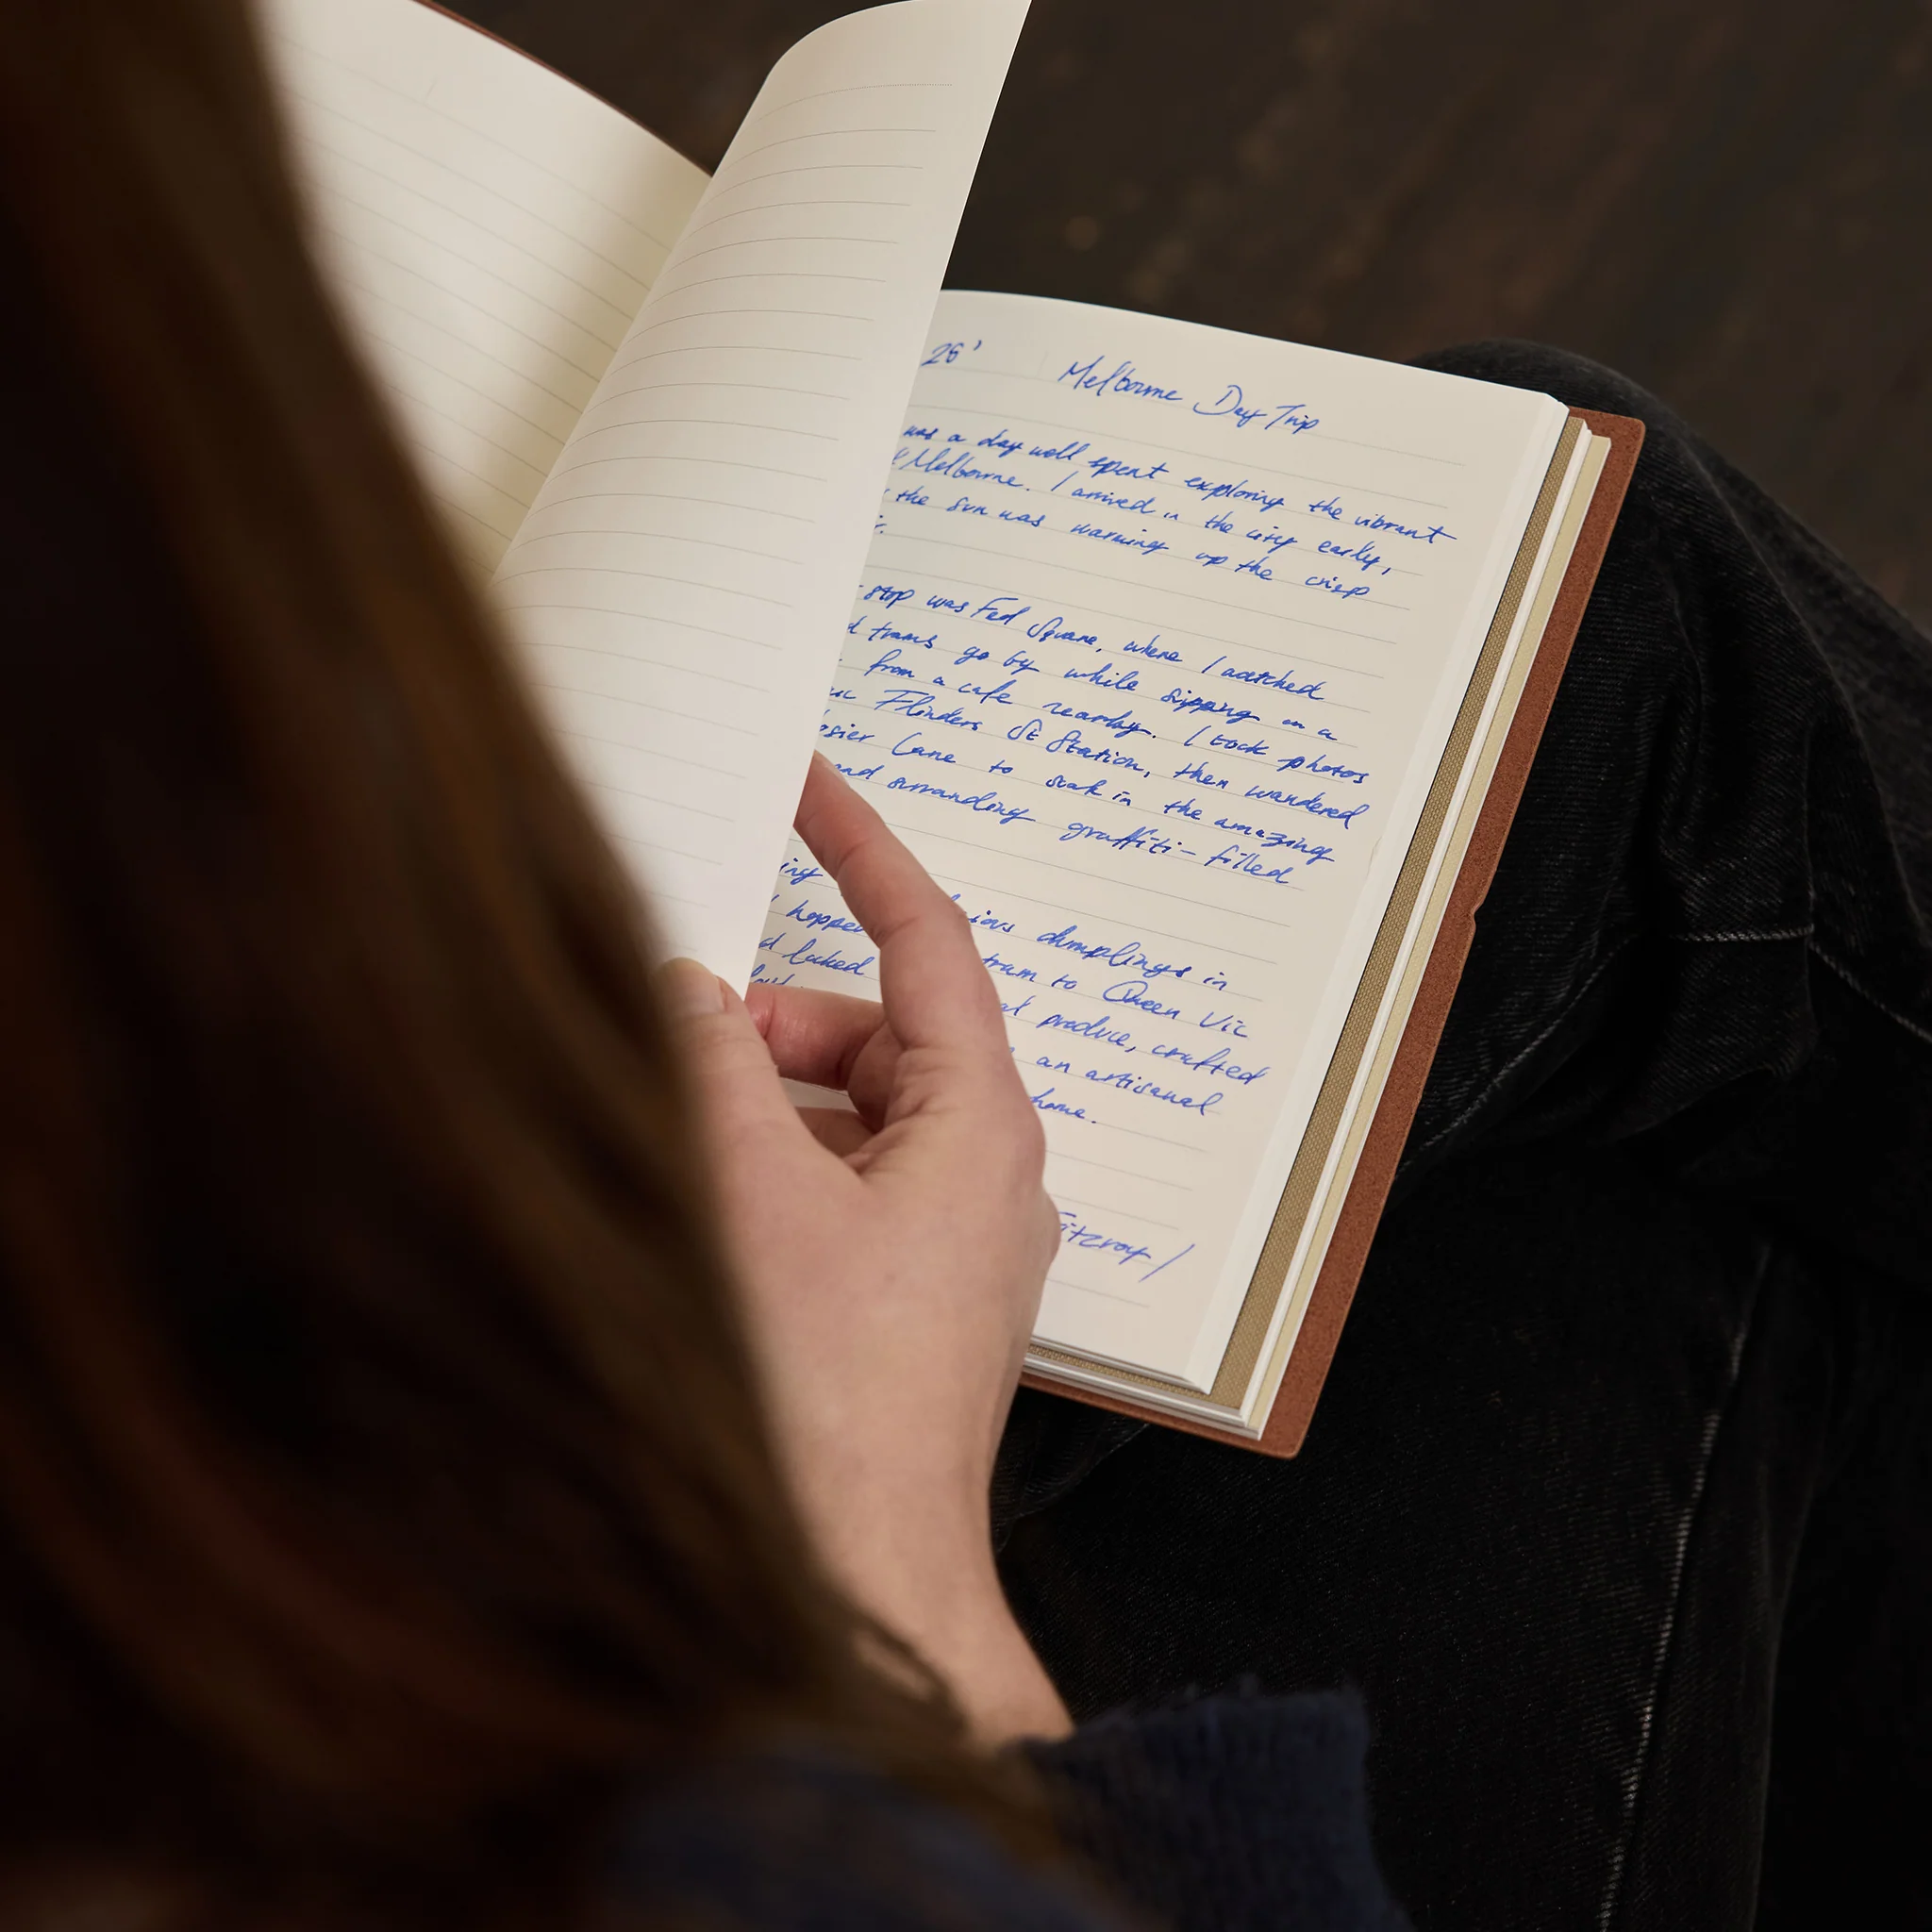 26' Melbourne Day Trip
was a day well spent exploring the vibrant
Melbourne. I arrived in the city early,
the sun was warming up the crisp
stop was Fed Square, where I watched
trams go by while sipping on a
from a cafe nearby. I took photos
Flinders St Station, then wandered
osier Lane to soak in the amazing
and surranding graffiti-filled
ing ious dumplings in
hopped tram to Queen Vic
produce, crafted
an artisanal
home.
Fitzroy /